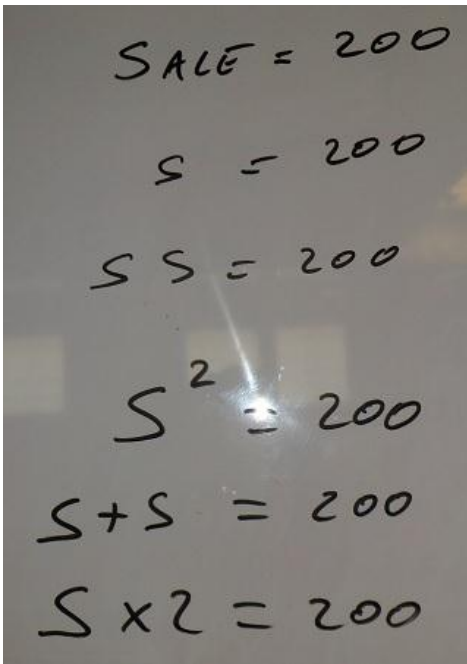 SALE = 200
S = 200
S S = 200
S² = 200
S + S = 200
S x 2 = 200